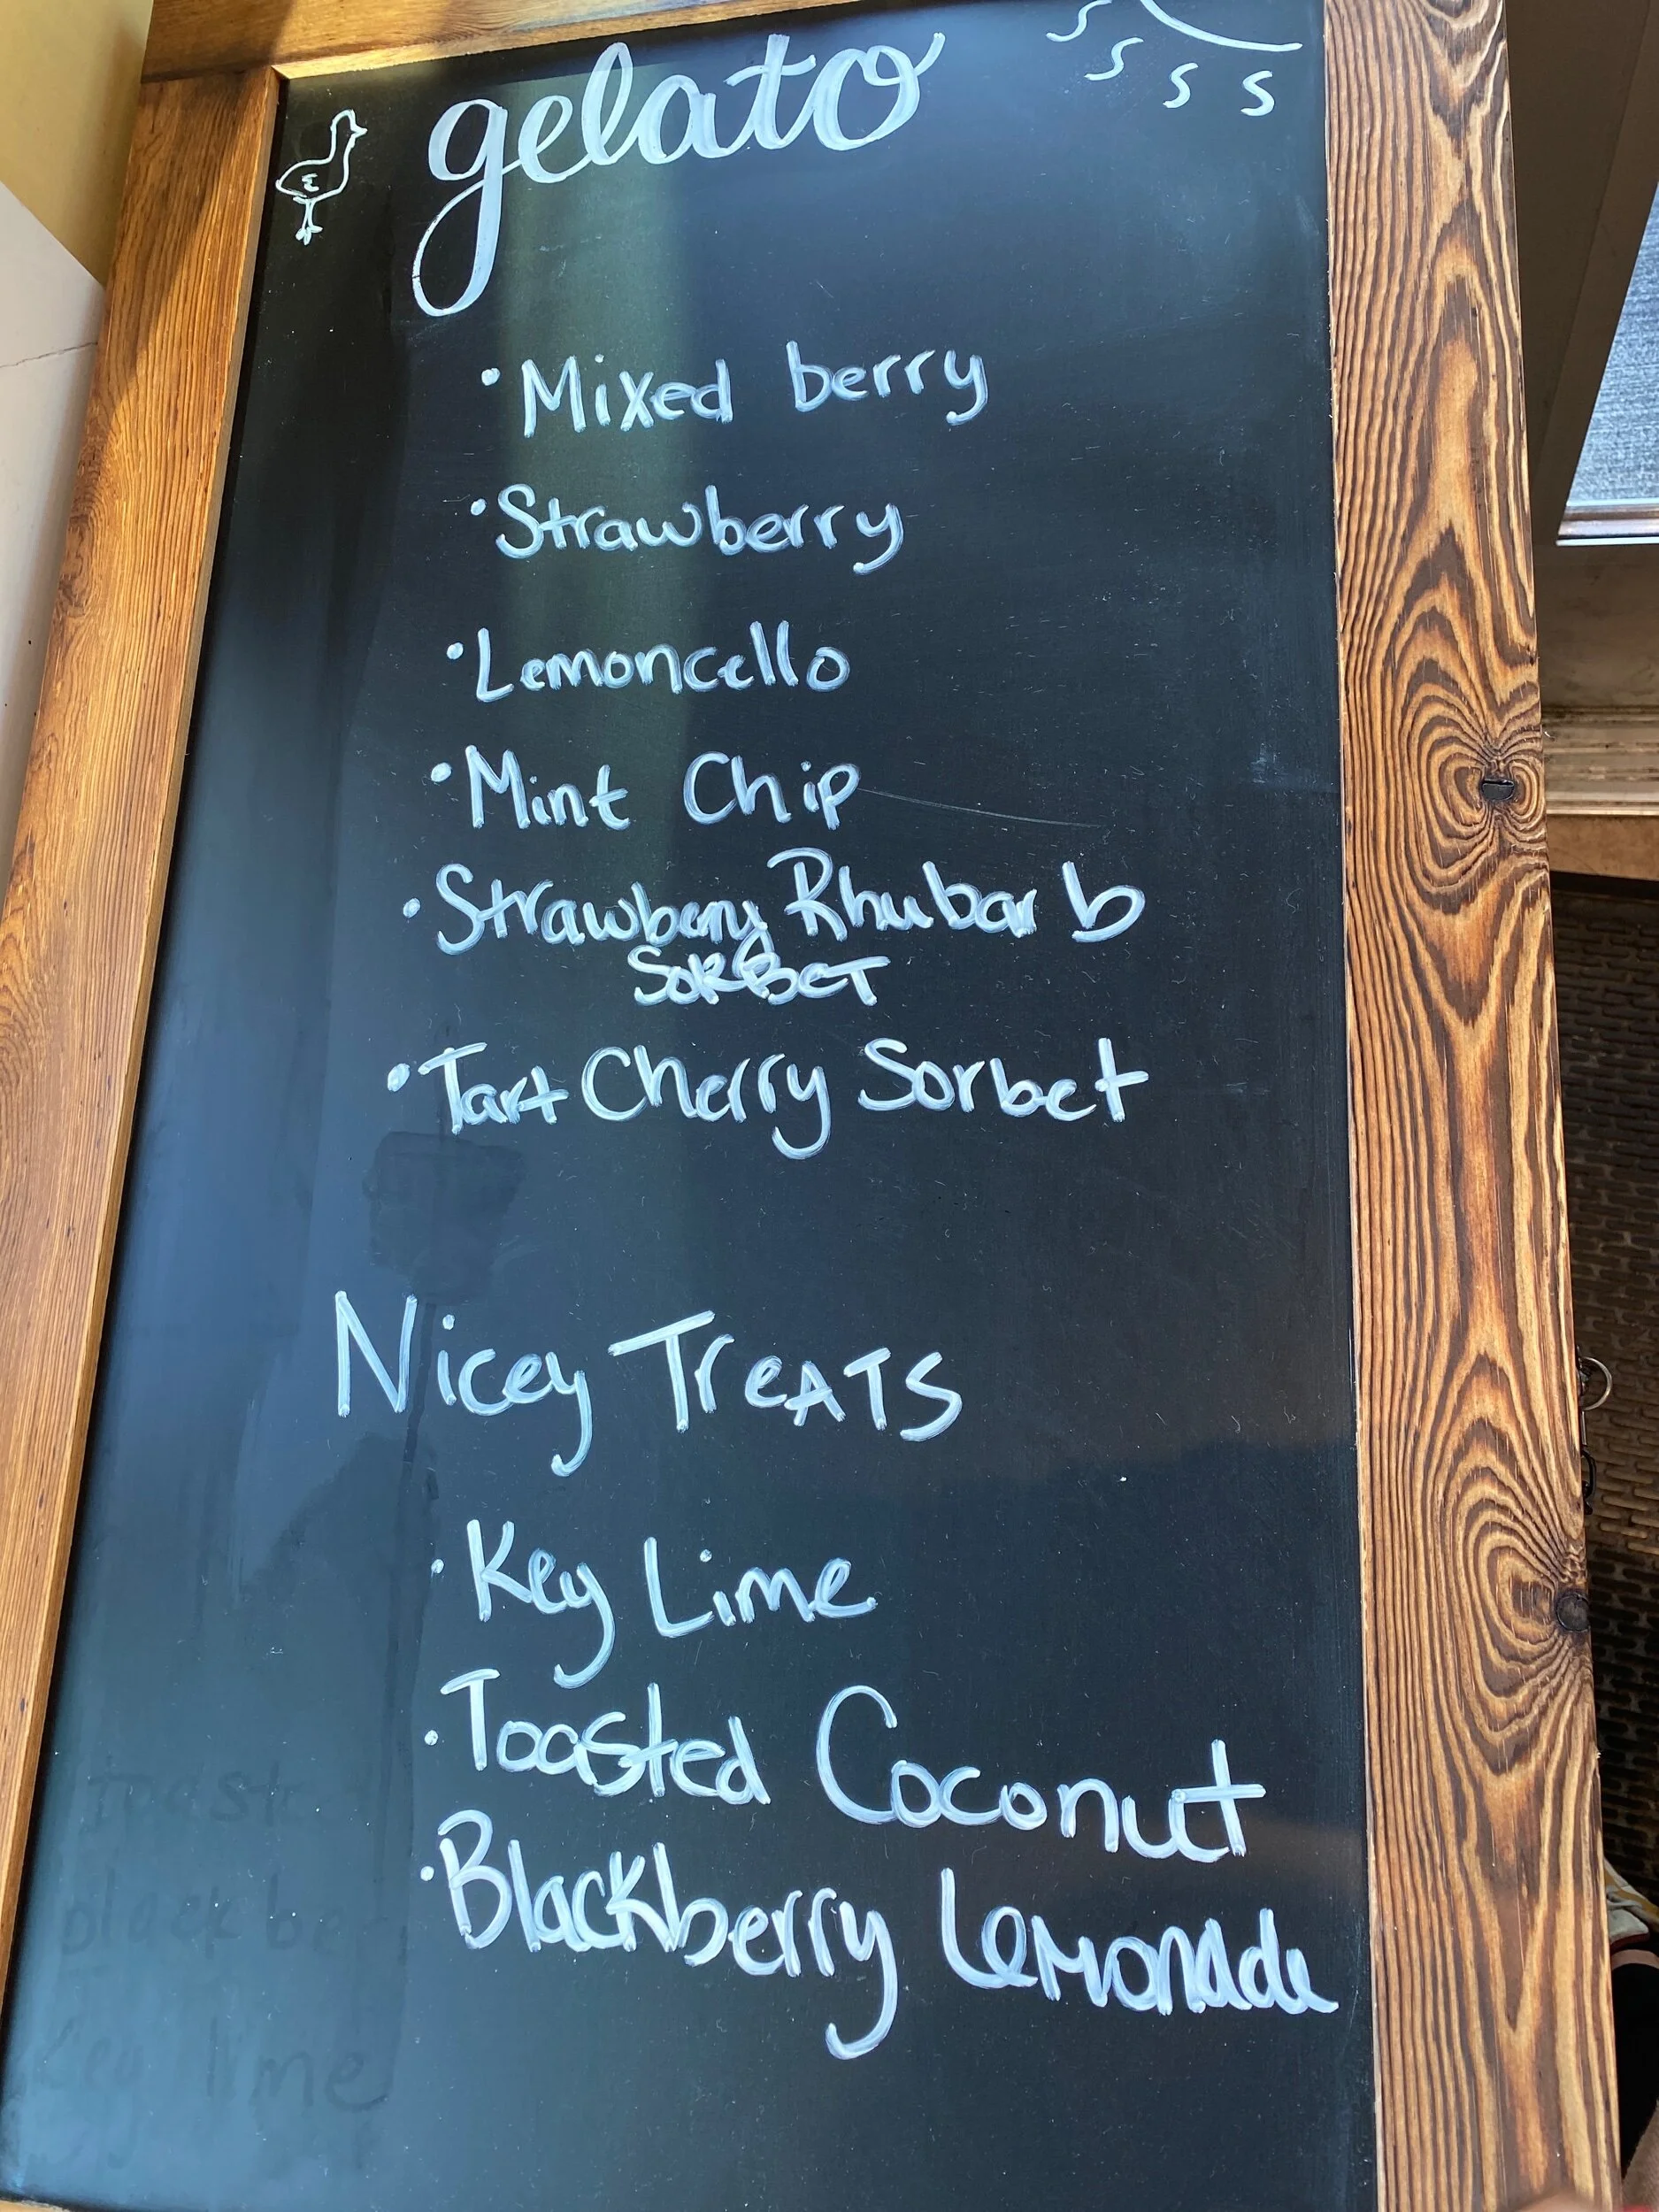 gelato
• Mixed berry
• Strawberry
• Lemoncello
• Mint Chip
• Strawberry Rhubarb
SORBET
• Tart Cherry Sorbet
Nicey TreATS
• Key Lime
• Toasted Coconut
• Blackberry Lemonade
key lime